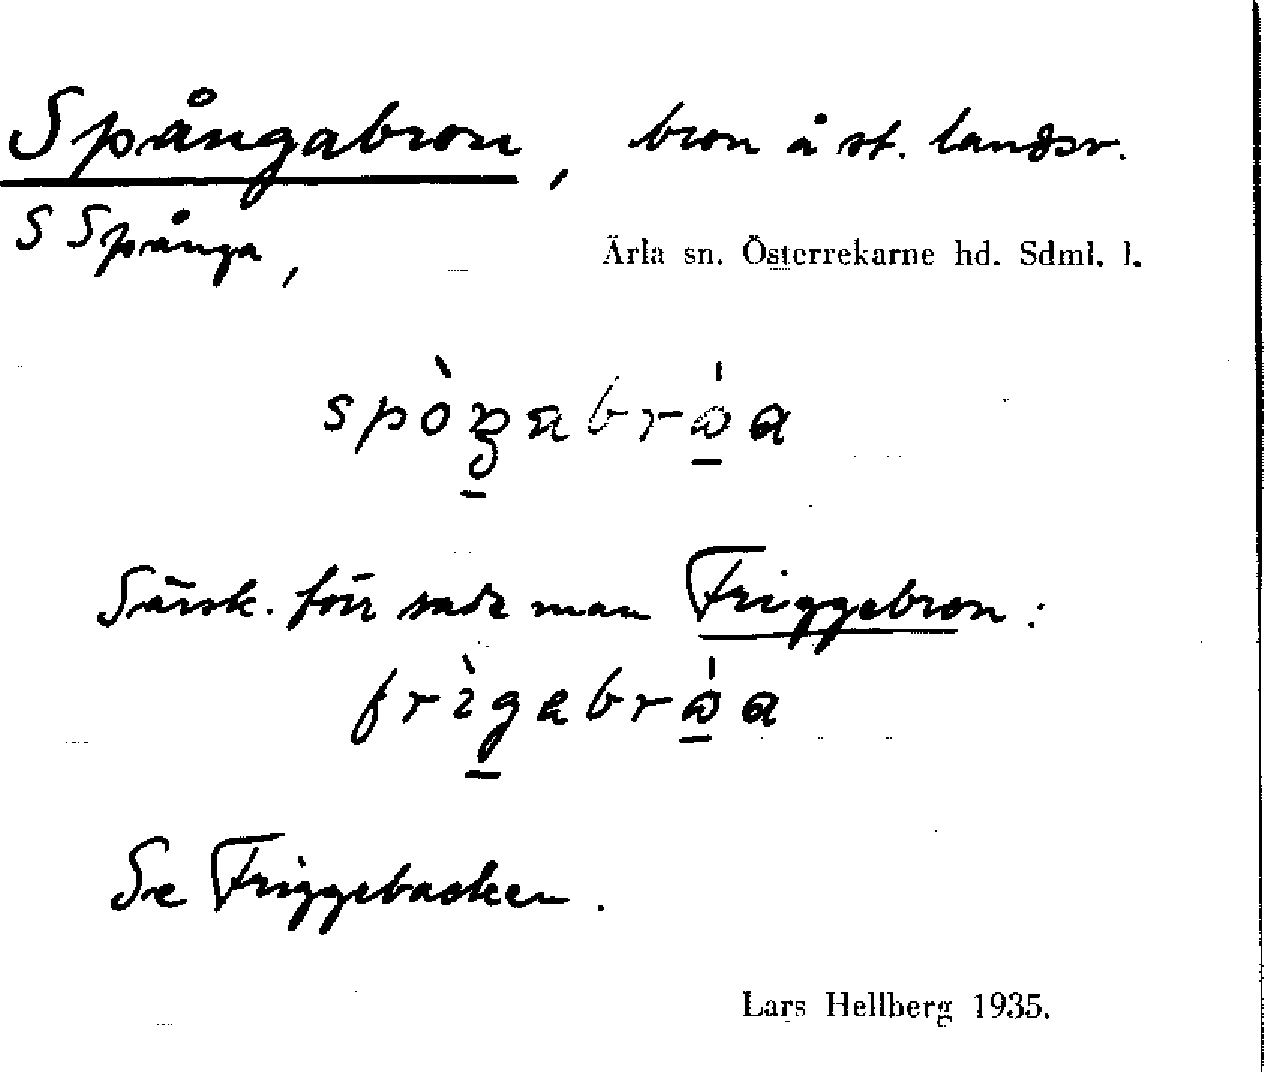 Spångabron, bron å st. landsv.
S Spånga,
Ärla sn. Österrekarne hd. Sdml. l.
Särsk. förr sade man Friggebron:
Se Friggebacken.
Lars Hellberg 1935.